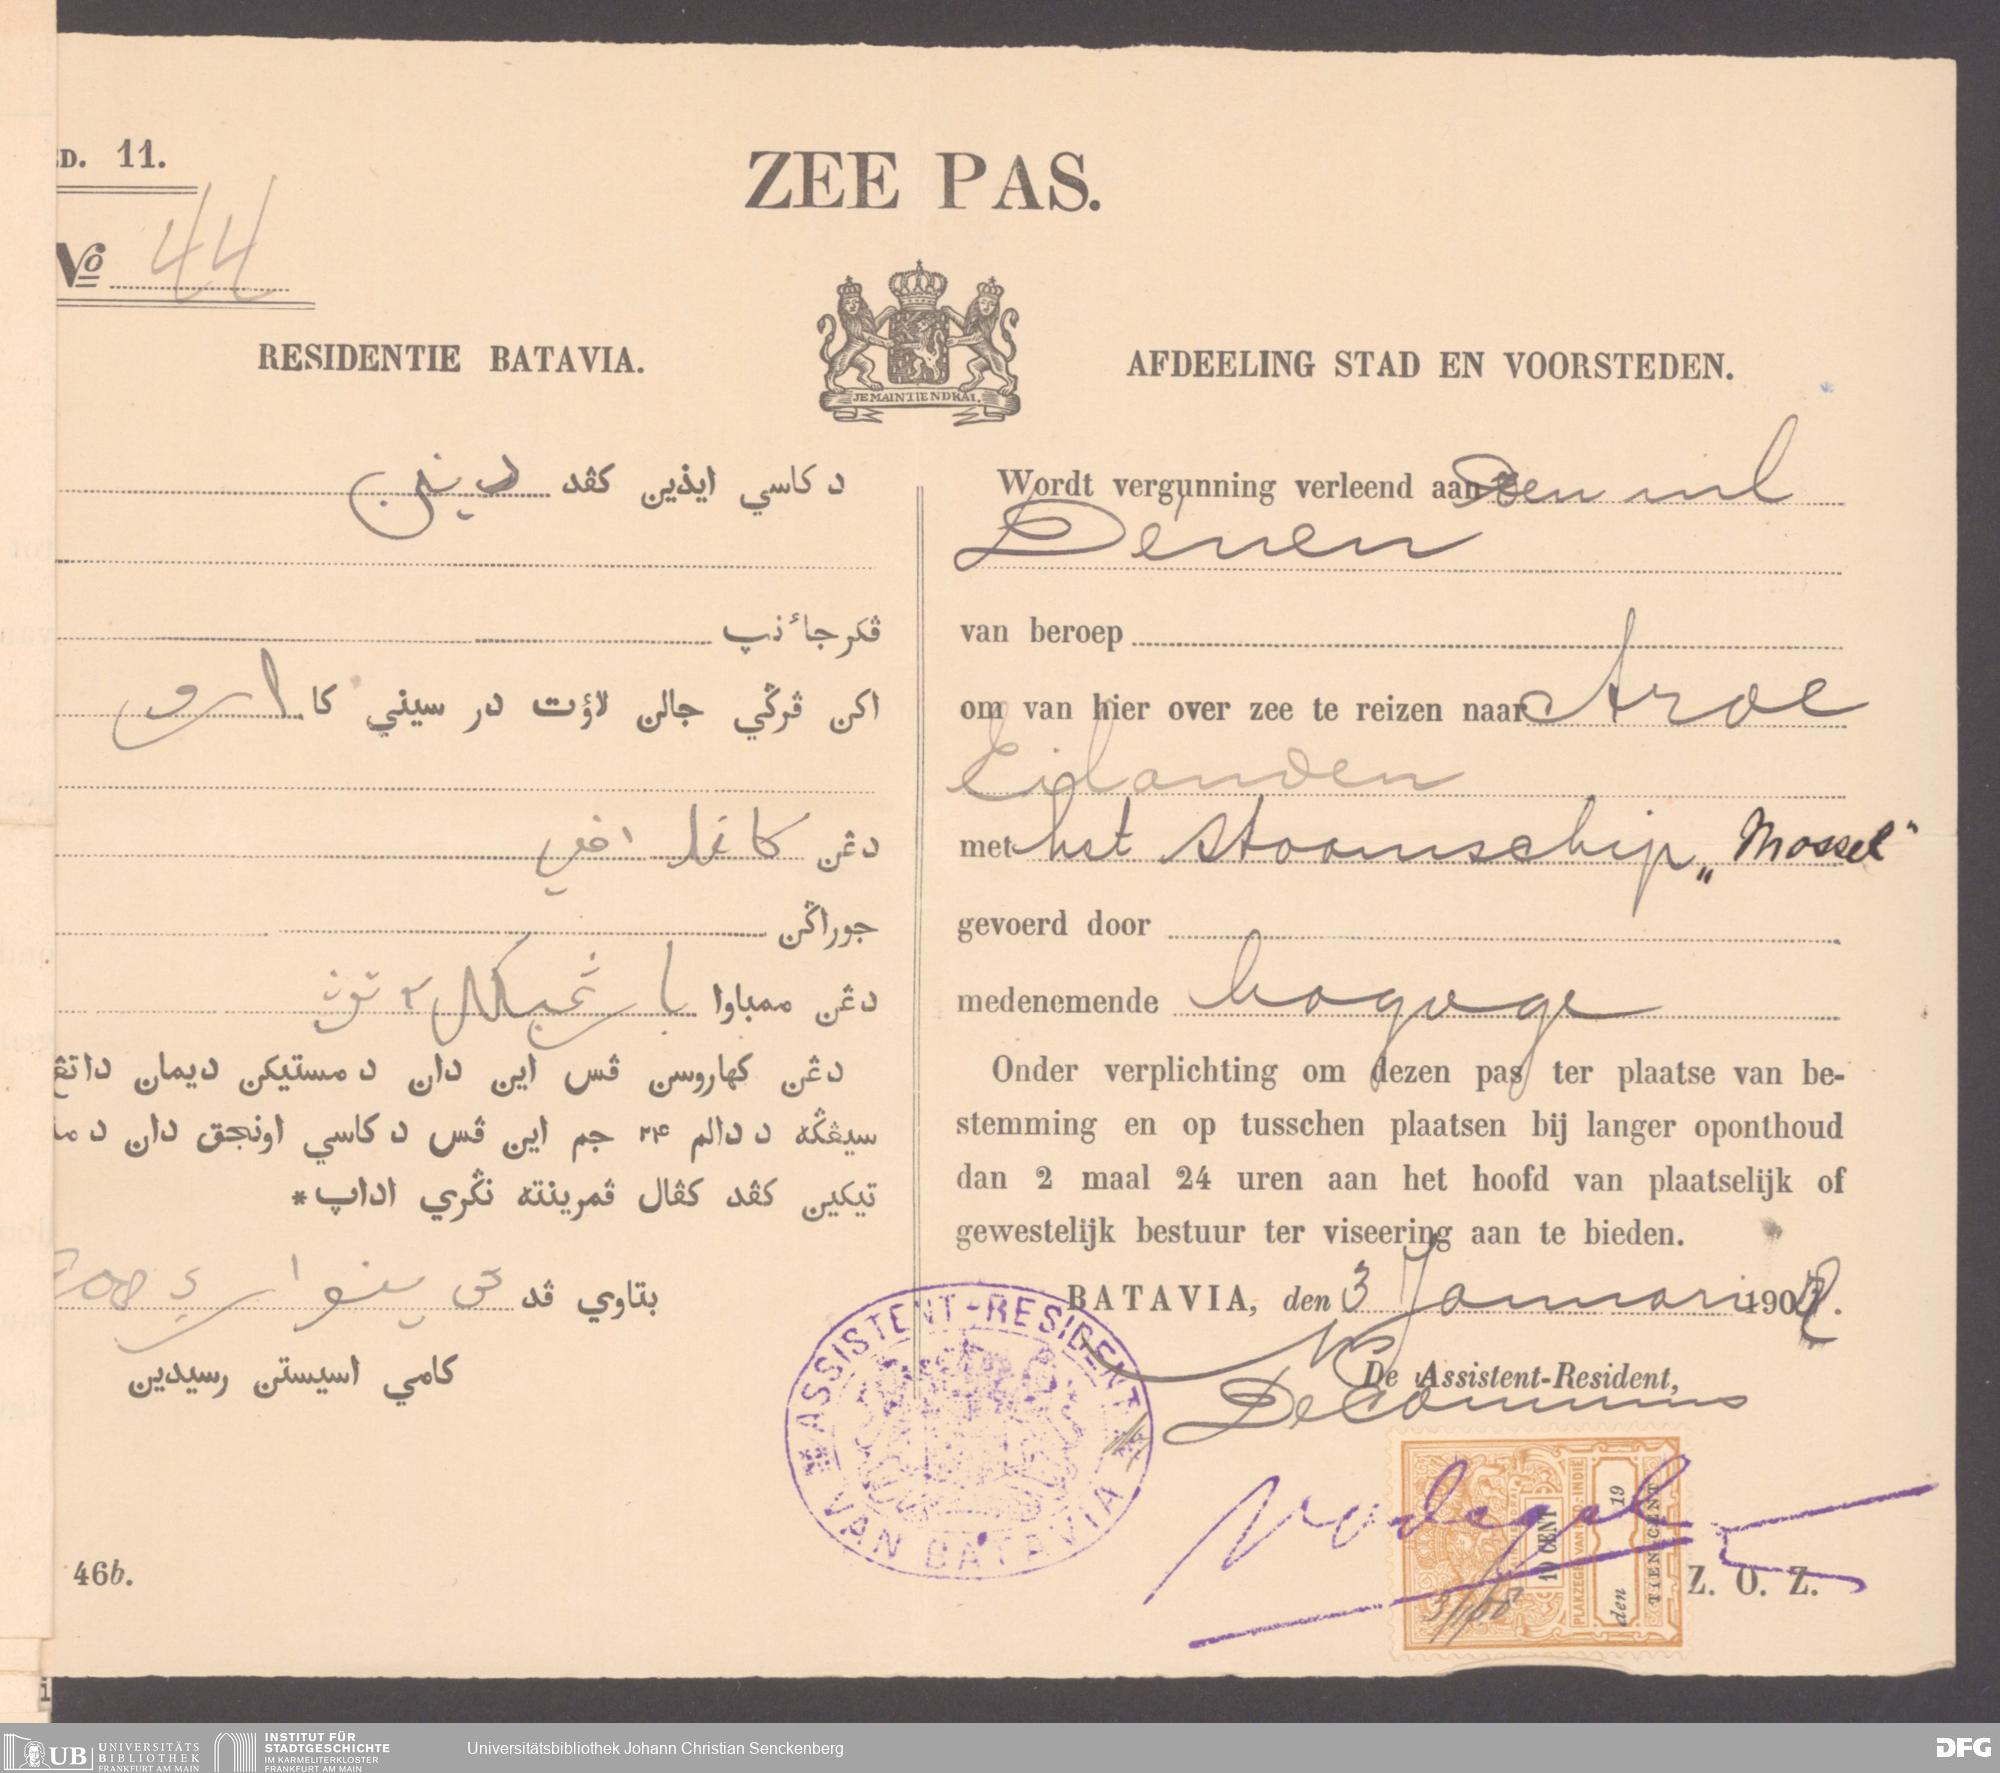 ED. 11.
ZEE PAS.
No 44
RESIDENTIE BATAVIA.
AFDEELING STAD EN VOORSTEDEN.
JE MAINTIENDRAI.
د كاسي ايذين كڤد دينين
ڤكرجاءنڽ
اكن ڤرڬي جالن لاؤت در سيني كا ارو
دڠن كاڤل اڤي
جوراڬن
دڠن ممباوا
دڠن كهاروسن ڤس اين دان د مستيكن ديمان داتڠ
سيڠڬه د دالم ٢٤ جم اين ڤس د كاسي اونجق دان د
تيكين كڤد كڤال ڤمرينته نڬري اداڽ*
بتاوي ڤد ينواري 1908
كامي اسيستن رسيدين
46b.
Wordt vergunning verleend aan
Denen
van beroep
om van hier over zee te reizen naar Aroe
Eilanden
met het stoomschip „Mossel"
gevoerd door
medenemende bagage
Onder verplichting om dezen pas ter plaatse van be-
stemming en op tusschen plaatsen bij langer oponthoud
dan 2 maal 24 uren aan het hoofd van plaatselijk of
gewestelijk bestuur ter viseering aan te bieden.
BATAVIA, den 3 Januari 1908.
De Assistent-Resident,
ASSISTENT-RESIDENT
VAN BATAVIA
10 CENT
PLAKZEGEL VAN NED.-INDIE
den 19
TIEN CENT
3/1/08
Z. O. Z.
UB UNIVERSITÄTS
BIBLIOTHEK
FRANKFURT AM MAIN
INSTITUT FÜR
STADTGESCHICHTE
IM KARMELITERKLOSTER
FRANKFURT AM MAIN
Universitätsbibliothek Johann Christian Senckenberg
DFG